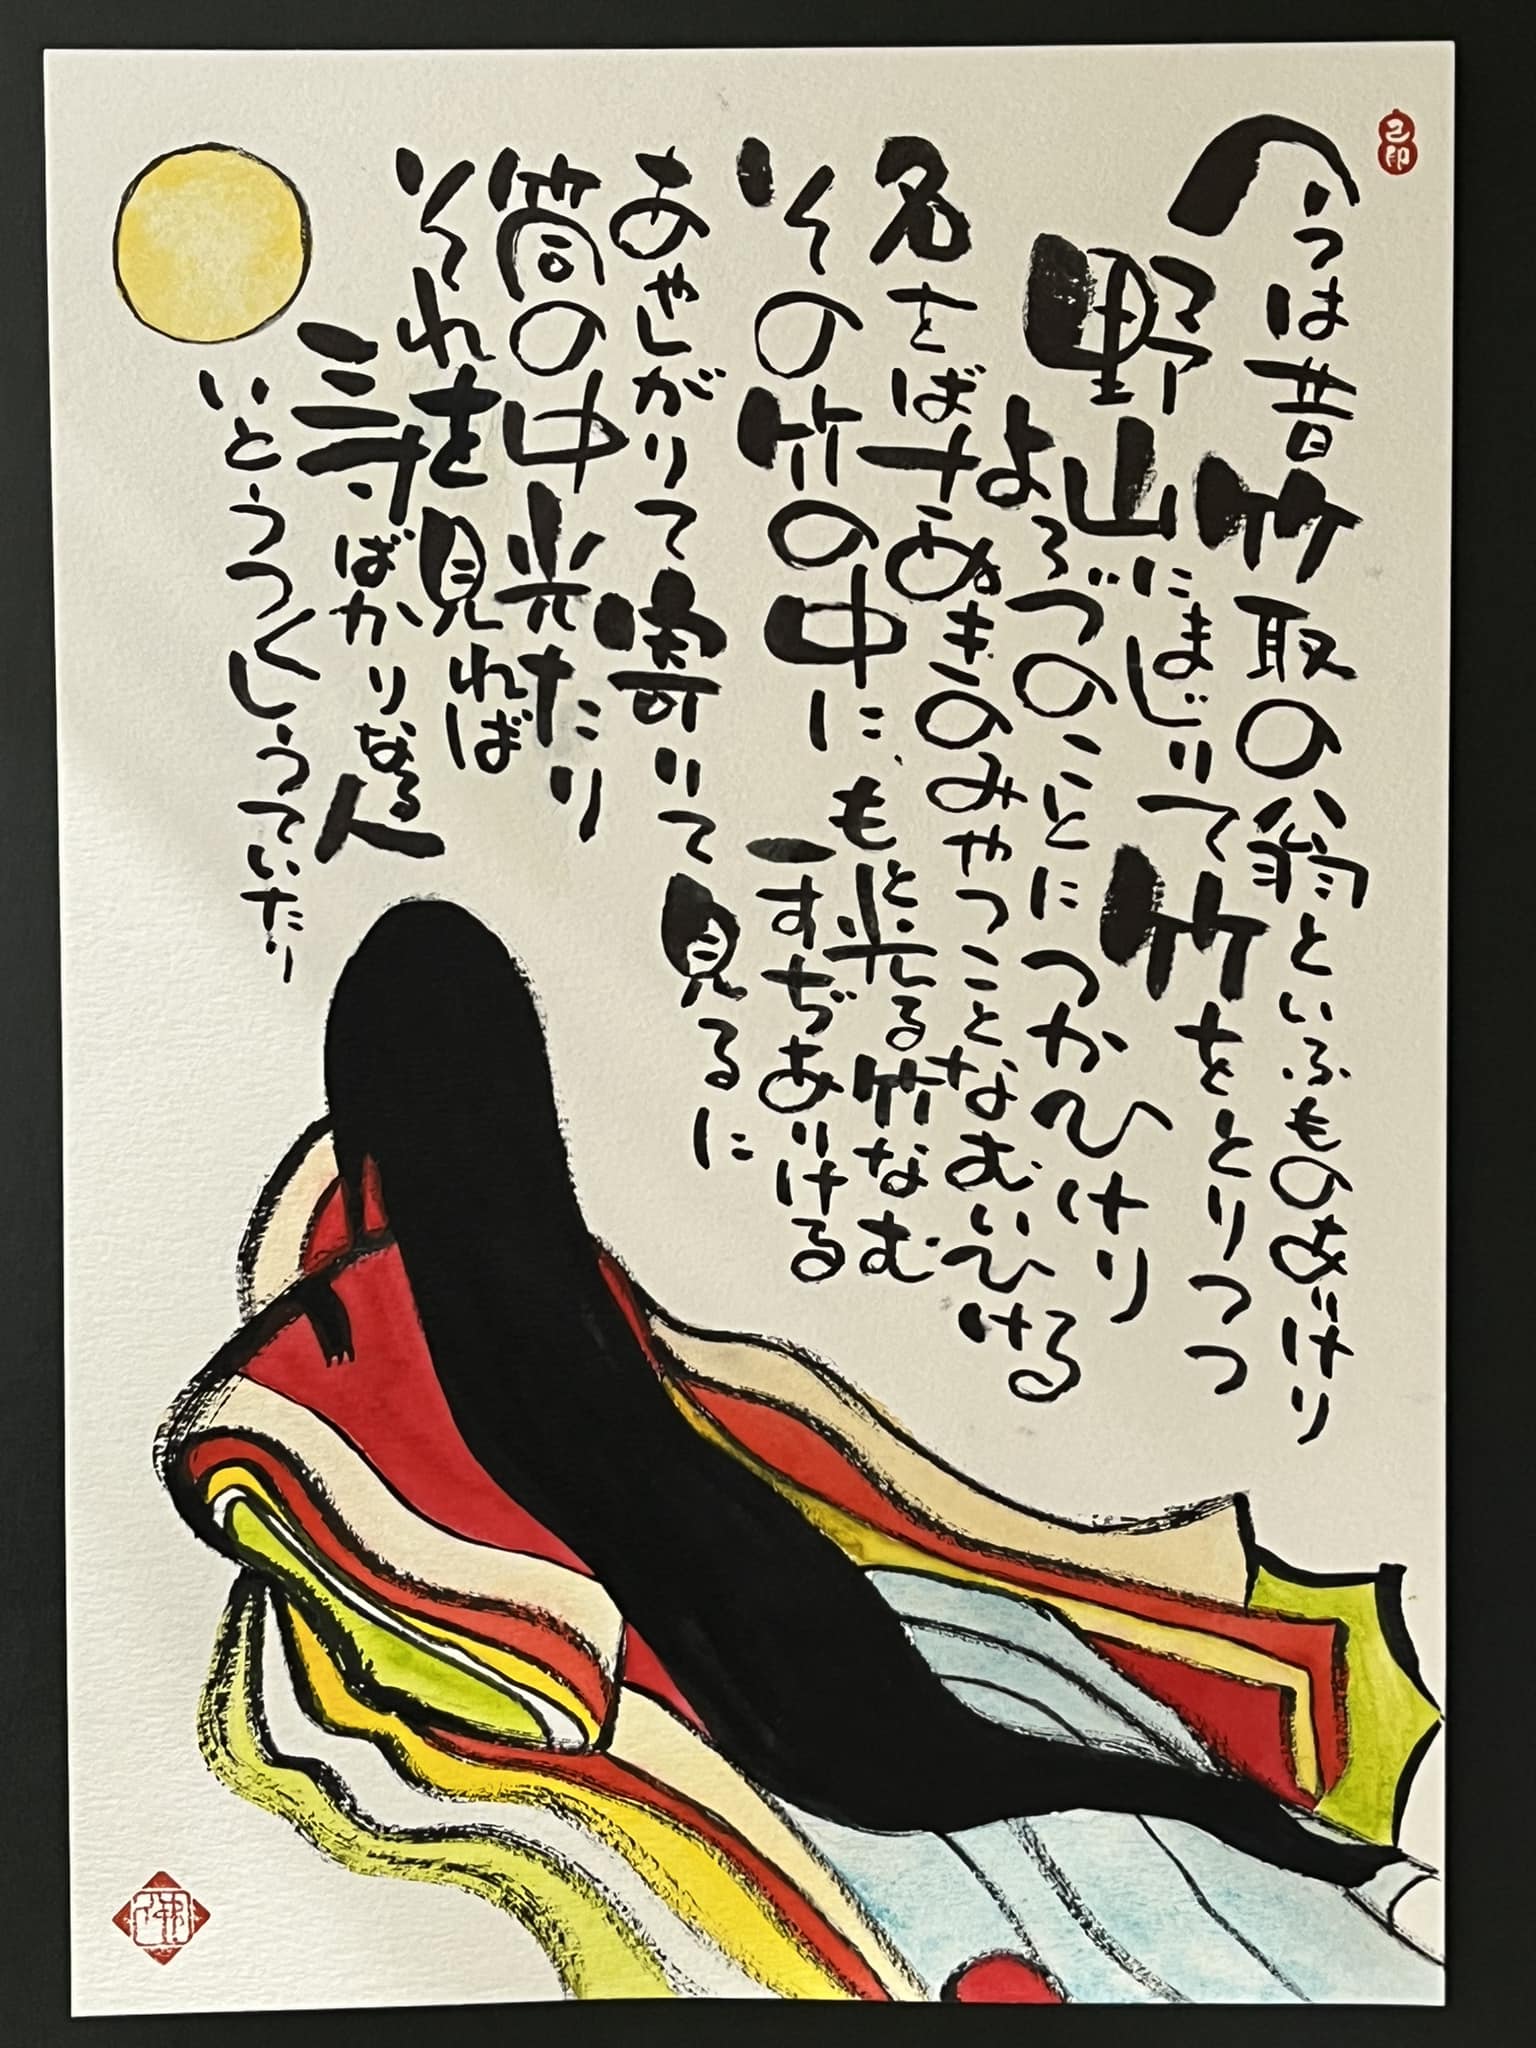 今は昔竹取の翁といふものありけり
野山にまじりて竹をとりつつ
よろづのことにつかひけり
名をばさぬきのみやつことなむいひける
その竹の中に、もと光る竹なむ
一すぢありける
あやしがりて寄りて見るに
筒の中光たり
それを見れば
三寸ばかりなる人
いとうつくしうていたり